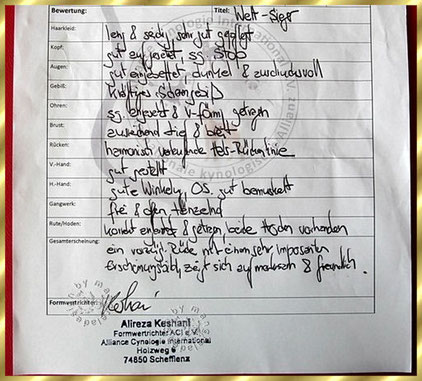 Bewertung: Titel: Welt-Sieger
Haarkleid: lang & seidig, sehr gut gepflegt
Kopf: gut aufgesetzt, sg. STOP
Augen: gut eingebettet, dunkel & ausdrucksvoll
Gebiß: kräftiges Scherengebiß
Ohren: sg. angesetzt & V-förmig getragen
Brust: ausreichend tief & breit
Rücken: harmonisch verlaufende Hals-Rückenlinie
V.-Hand: gut gestellt
H.-Hand: gute Winkelg. OS. gut bemuskelt
Gangwerk: frei &
Rute/Hoden: korrekt & getragen beide Hoden vorhanden
Gesamterscheinung: ein vorzügl. Rüde mit einem sehr imposanten
Erscheinungsbild, zeigt sich aufmerksam & freundlich.
Formwertrichter: Keshani
Alireza Keshani
Formwertrichter ACI e.V.
Alliance Cynologie International
Holzweg 6
74850 Schefflenz